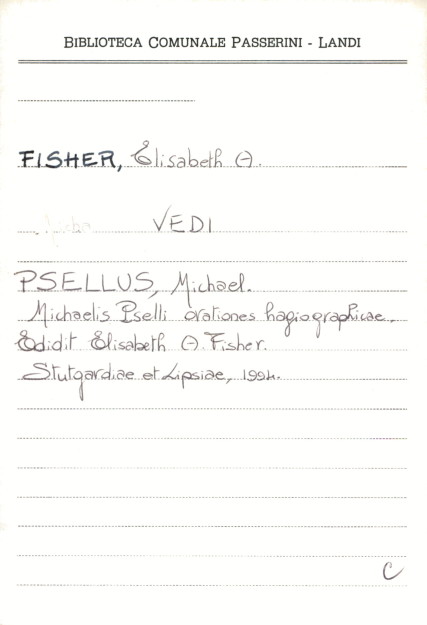 BIBLIOTECA COMUNALE PASSERINI - LANDI
FISHER, Elisabeth A.
VEDI
PSELLUS, Michael.
Michaelis Pselli orationes hagiographicae.
Edidit Elisabeth A. Fisher.
Stutgardiae et Lipsiae, 1994.
C